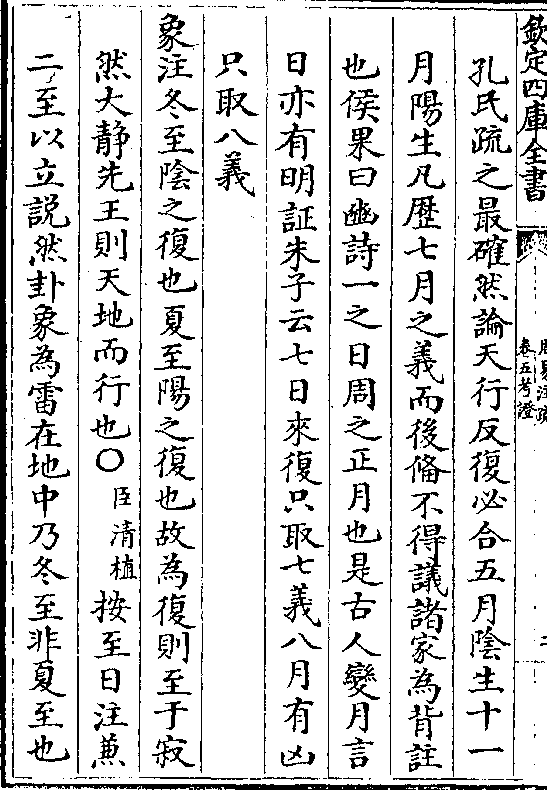 欽定四庫全書
周易注疏
卷五考證
二
孔氏疏之最確然論天行反復必合五月陰生十一
月陽生凡歷七月之義而後備不得議諸家為背註
也侯果曰豳詩一之日周之正月也是古人變月言
日亦有明証朱子云七日來復只取七義八月有凶
只取八義
象注冬至陰之復也夏至陽之復也故為復則至于寂
然大静先王則天地而行也〇臣清植按至日注兼
二至以立説然卦象為雷在地中乃冬至非夏至也